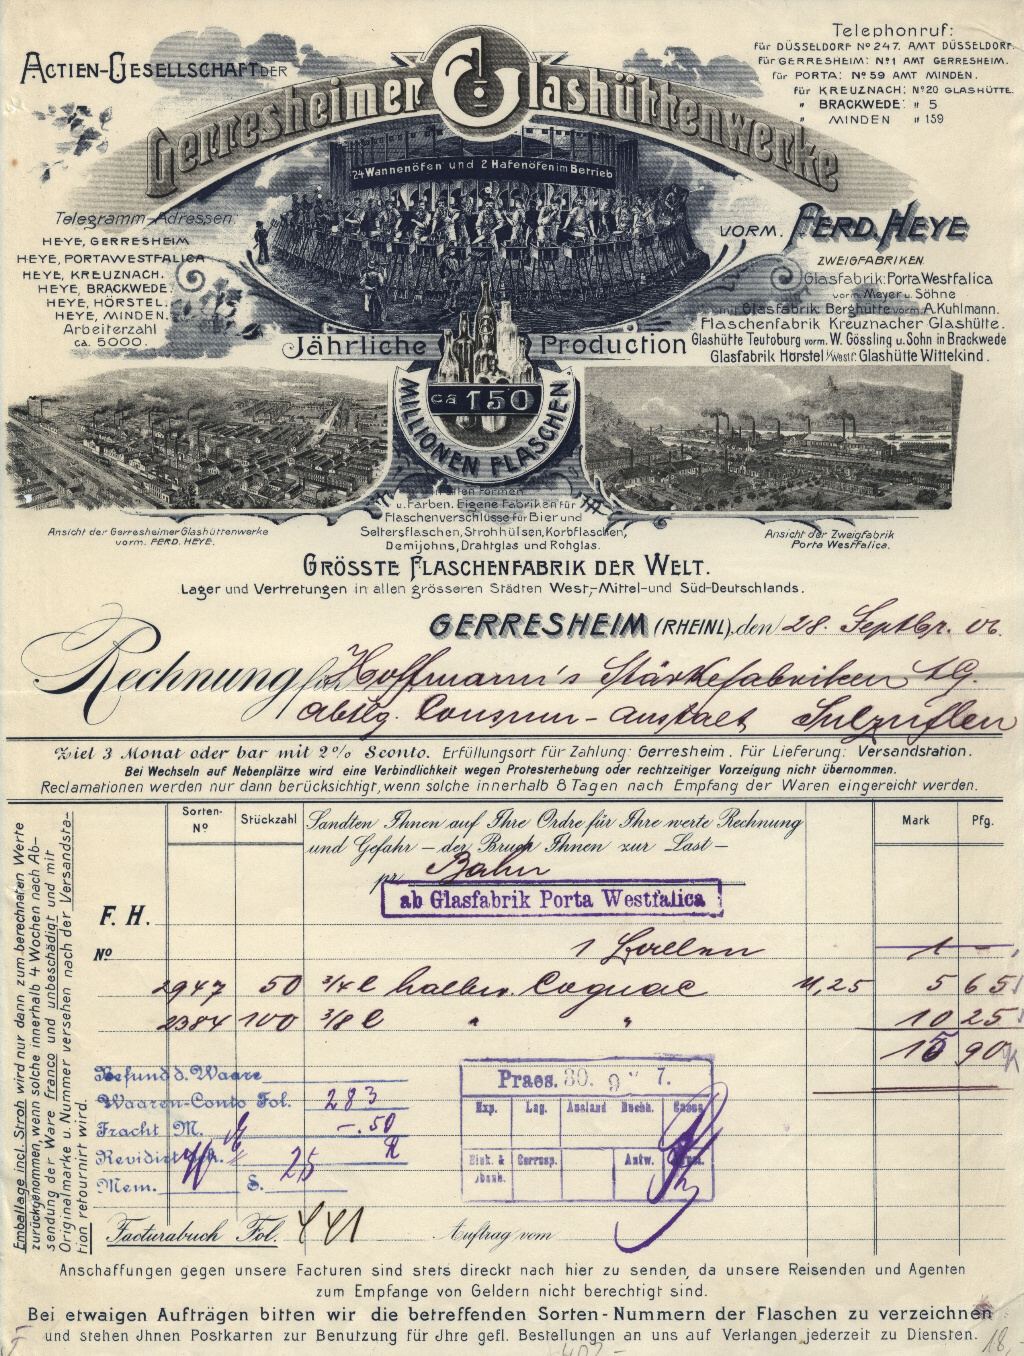 Actien-Gesellschaft der
Gerresheimer Glashüttenwerke
Telephonruf:
für DÜSSELDORF No 247. AMT DÜSSELDORF.
für GERRESHEIM: No 1 AMT GERRESHEIM.
für PORTA: No 59 AMT MINDEN.
für KREUZNACH: No 20 GLASHÜTTE.
" BRACKWEDE: " 5
" MINDEN " 159
24 Wannenöfen und 2 Hafenöfen im Betrieb
Telegramm-Adressen:
HEYE, GERRESHEIM
HEYE, PORTAWESTFALICA
HEYE, KREUZNACH.
HEYE, BRACKWEDE.
HEYE, HÖRSTEL.
HEYE, MINDEN.
Arbeiterzahl
ca. 5000.
VORM. FERD. HEYE
ZWEIGFABRIKEN
Glasfabrik: Porta Westfalica
vorm. Meyer u. Söhne
mit Glasfabrik Berghütte vorm. A. Kuhlmann.
Flaschenfabrik Kreuznacher Glashütte.
Glashütte Teutoburg vorm. W. Gössling u. Sohn in Brackwede
Glasfabrik Hörstel i/Westf. Glashütte Wittekind.
Jährliche Production
ca 150
MILLIONEN FLASCHEN
in allen Formen
u. Farben. Eigene Fabriken für
Flaschenverschlüsse für Bier und
Seltersflaschen, Strohhülsen, Korbflaschen,
Demijohns, Drahtglas und Rohglas.
Ansicht der Gerresheimer Glashüttenwerke
vorm. FERD. HEYE.
Ansicht der Zweigfabrik
Porta Westfalica.
GRÖSSTE FLASCHENFABRIK DER WELT.
Lager und Vertretungen in allen grösseren Städten West,-Mittel-und Süd-Deutschlands.
GERRESHEIM (RHEINL), den 28. Septbr. 06.
Rechnung für Hoffmann's Stärkefabriken AG.
Abtlg. Consum-Anstalt Salzuflen
Ziel 3 Monat oder bar mit 2% Sconto. Erfüllungsort für Zahlung: Gerresheim. Für Lieferung: Versandstation.
Bei Wechseln auf Nebenplätze wird eine Verbindlichkeit wegen Protesterhebung oder rechtzeitiger Vorzeigung nicht übernommen.
Reclamationen werden nur dann berücksichtigt, wenn solche innerhalb 8 Tagen nach Empfang der Waren eingereicht werden.
Emballage incl. Stroh wird nur dann zum berechneten Werte
zurückgenommen, wenn solche innerhalb 4 Wochen nach Ab-
sendung der Ware franco und unbeschädigt und mit
Originalmarke u. Nummer versehen nach der Versandsta-
tion retournirt wird.
Sorten-No Stückzahl Mark Pfg.
Sandten Ihnen auf Ihre Ordre für Ihre werte Rechnung
und Gefahr – der Bruch Ihnen zur Last –
pr. Bahn
ab Glasfabrik Porta Westfalica
F. H.
No
1 Ballen 1 –
2947 50 3/4 l halbw. Cognac 11,25 5 65
2384 100 3/8 l " " 10 25
15 90
Befund d. Waare
Waaren-Conto Fol. 283
Fracht M. -.50
Revidirt
25
Mem. S.
Praes. 30. 9. 7.
Exp. Lag. Ausland Buchh. Cassa
Corresp. Antw.
Facturabuch Fol. 441 Auftrag vom
Anschaffungen gegen unsere Facturen sind stets direkt nach hier zu senden, da unsere Reisenden und Agenten
zum Empfange von Geldern nicht berechtigt sind.
Bei etwaigen Aufträgen bitten wir die betreffenden Sorten-Nummern der Flaschen zu verzeichnen
und stehen Jhnen Postkarten zur Benutzung für Jhre gefl. Bestellungen an uns auf Verlangen jederzeit zu Diensten.
18,-